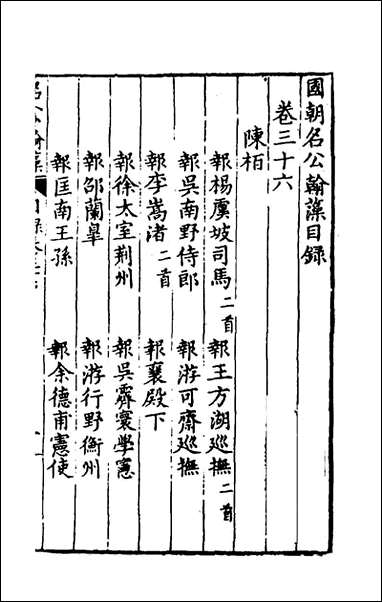 國朝名公翰藻目錄
卷三十六
陳栢
報楊虞坡司馬二首
報王方湖巡撫二首
報吳南野侍郎
報游可齋巡撫
報李嵩渚二首
報襄殿下
報徐太室荆州
報吳霽寰學憲
報邵蘭臯
報游行野衡州
報匡南王孫
報余德甫憲使